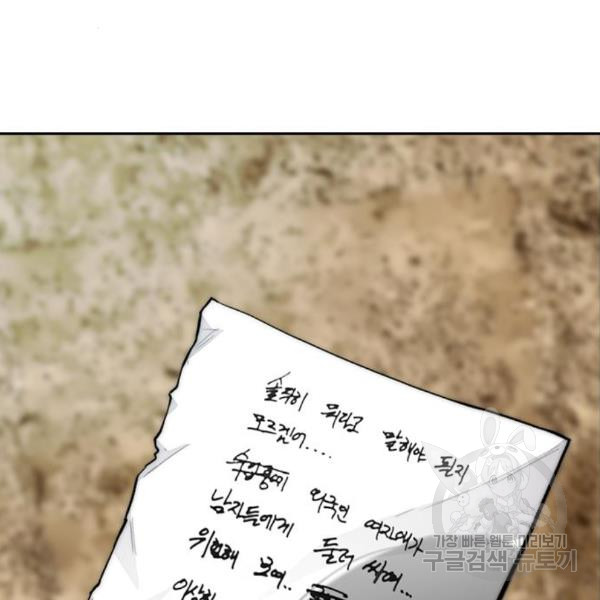 솔직히 뭐라고 말해야 될지
모르겠어....
외국인 여자애가
남자들에게 둘러 싸여...
위험해 보여..
이상한
가장 빠른 웹툰 미리보기
구글검색 뉴토끼